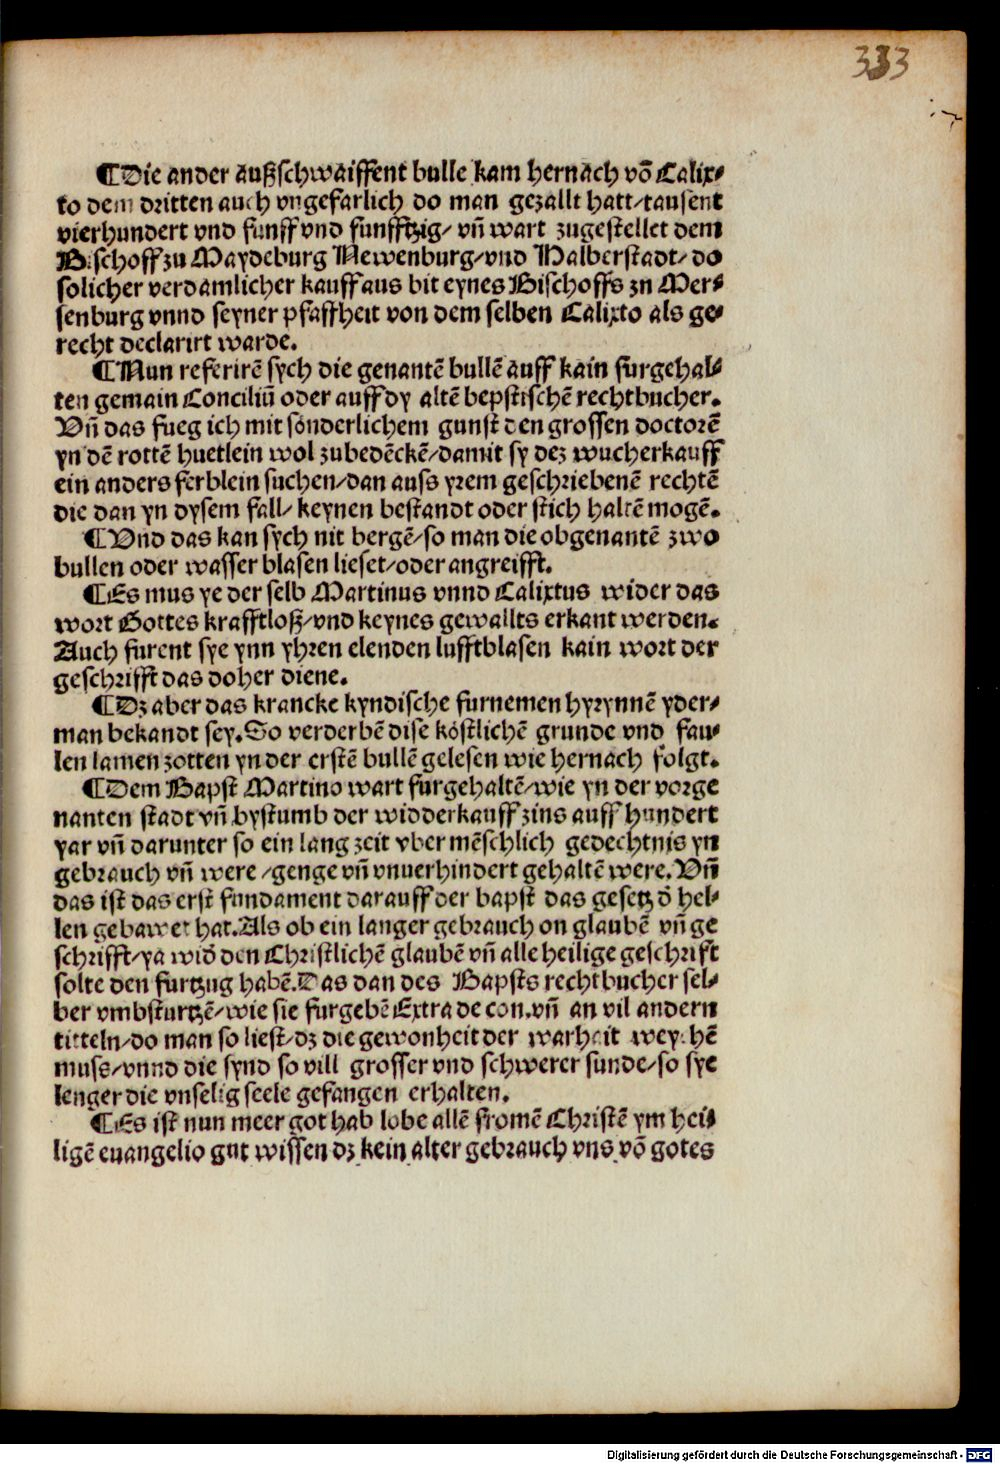 333
¶Die ander außschwaiffent bulle kam hernach vō Calix⸗
to dem dritten auch vngefarlich do man gezallt hatt/tausent
vierhundert vnd funff vnd funfftzig/ vn̄ wart zugestellet dem
Bischoff zu Maydeburg Newenburg/vnd Halberstadt/ do
solicher verdamlicher kauff aus bit eynes Bischoffs zn Mer⸗
senburg vnnd seyner pfaffheit von dem selben Calixto als ge⸗
recht declarirt warde.
¶Nun referirē sych die genantē bullē auff kain furgehal⸗
ten gemain Conciliū oder auff dy altē bepstischē rechtbucher.
Vn̄ das fueg ich mit sonderlichem gunst den grossen doctorē
yn dē rottē huetlein wol zubedēckē/damit sy dez wucherkauff
ein anders ferblein suchen/dan auss yrem geschriebenē rechtē
die dan yn dysem fall/ keynen bestandt oder stich haltē mogē.
¶Vnd das kan sych nit bergē/so man die obgenantē zwo
bullen oder wasser blasen lieset/oder angreifft.
¶Es mus ye der selb Martinus vnnd Calixtus wider das
wort Gottes krafftloß/vnd keynes gewallts erkant werden.
Auch furent sye ynn yhren elenden lufftblasen kain wort der
geschrifft das doher diene.
¶Dz aber das krancke kyndische furnemen hyrynnē yder⸗
man bekandt sey. So verderbē dise köstlichē grunde vnd fau⸗
len lamen zotten yn der erstē bullē gelesen wie hernach folgt.
¶Dem Bapst Martino wart furgehaltē/wie yn der vorge
nanten stadt vn̄ bystumb der widderkauff zins auff hundert
yar vn̄ darunter so ein lang zeit vber mēschlich gedechtnis yn
gebrauch vn̄ were /genge vn̄ vnuerhindert gehaltē were. Vn̄
das ist das erst fundament darauff der bapst das gesetz d̄ hel⸗
len gebawet hat. Als ob ein langer gebrauch on glaubē vn̄ ge
schrifft/ya wid̄ den Christlichē glaubē vn̄ alle heilige geschrift
solte den furtzug habē. Das dan des Bapsts rechtbucher sel⸗
ber vmbsturtzē/wie sie furgebē Extra de con. vn̄ an vil andern
titteln/do man so liest/dz die gewonheit der warheit weychē
muss/vnnd die synd so vill grosser vnd schwerer sunde/so sye
lenger die vnselig seele gefangen erhalten.
¶Es ist nun meer got hab lobe allē fromē Christē ym hei⸗
ligē euangelio gut wissen dz kein alter gebrauch vns vō gotes
Digitalisierung gefördert durch die Deutsche Forschungsgemeinschaft - DFG